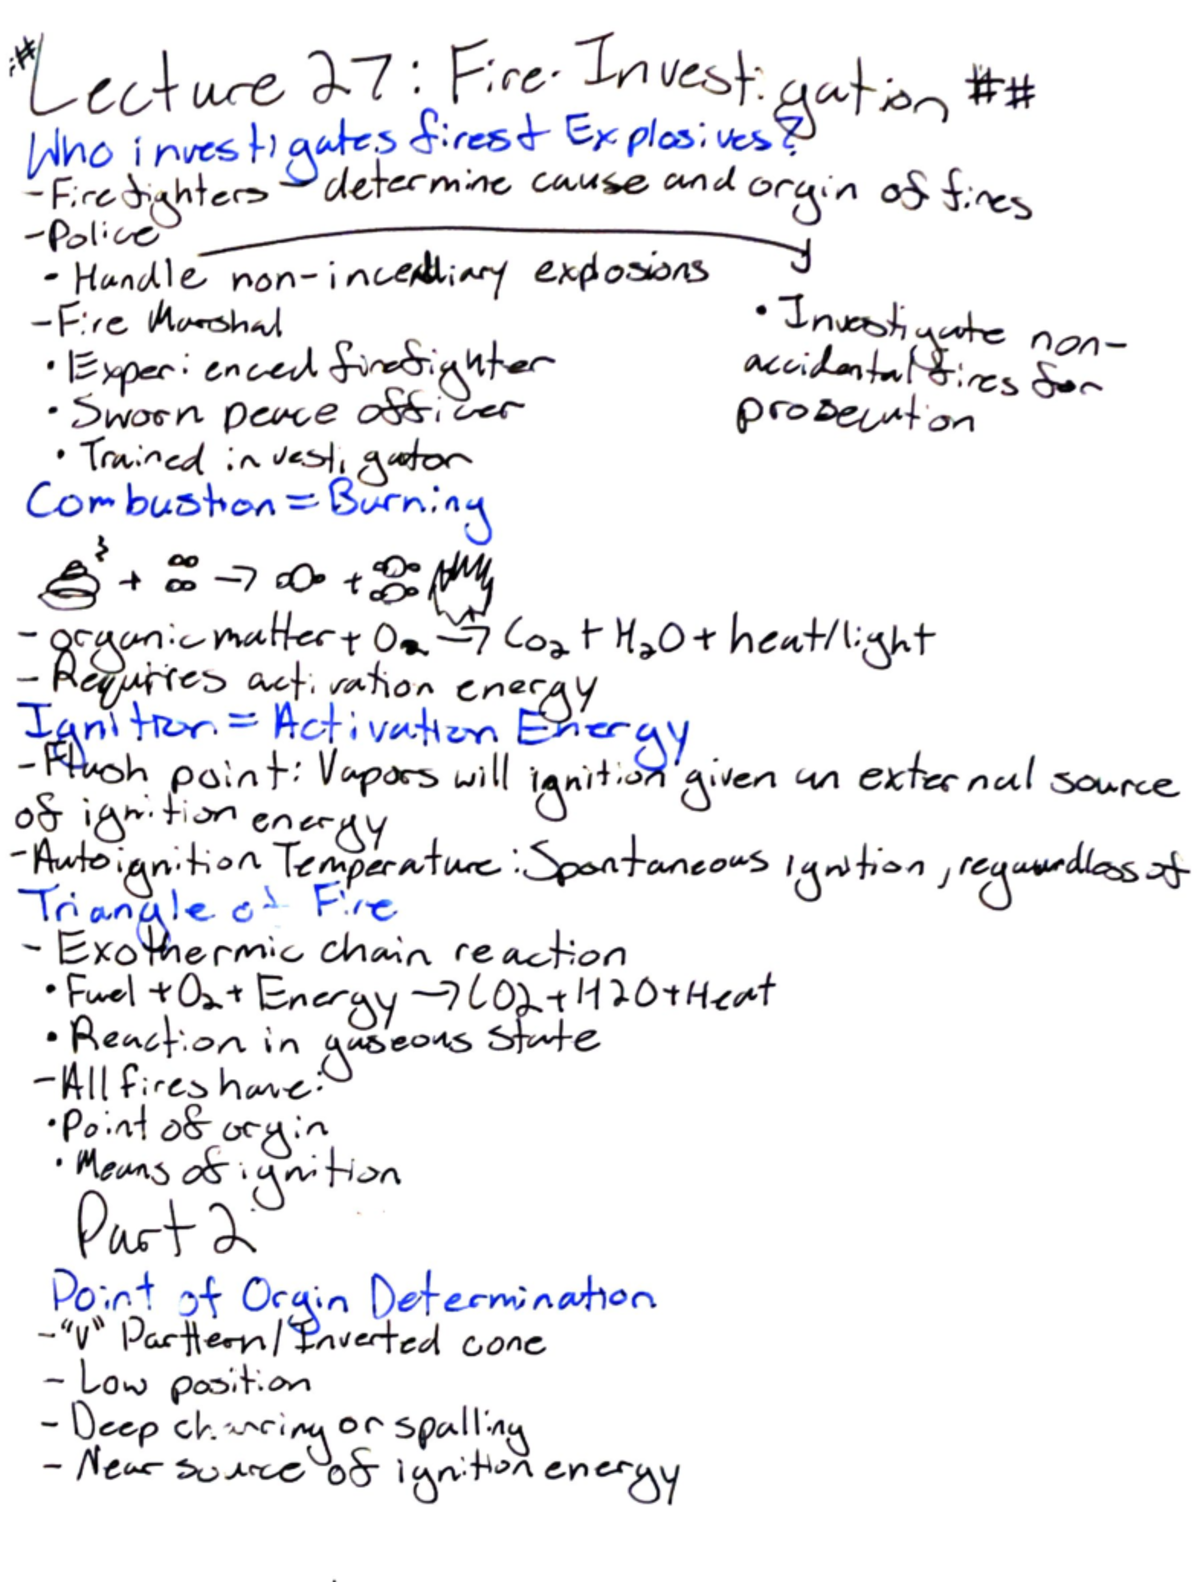 # Lecture 27: Fire Investigation ##
Who investigates fires + Explosives?
- Firefighters - determine cause and orgin of fires
- Police
• Handle non-incendiary explosions
• Investigate non-
accidental fires for
prosecution
- Fire Marshal
• Experienced firefighter
• Sworn peace officer
• Trained investigator
Combustion = Burning
+ → +
- organic matter + O2 → Co2 + H2O + heat/light
- Requries activation energy
Ignition = Activation Energy
- Flash point: Vapors will ignition given an external source
of ignition energy
- Autoignition Temperature: Spontaneous ignition, regaurdless of
Triangle of Fire
- Exothermic chain reaction
• Fuel + O2 + Energy → CO2 + H2O + Heat
• Reaction in gaseous state
- All fires have:
• Point of orgin
• Means of ignition
Part 2
Point of Orgin Determination
- "V" Parttern/Inverted cone
- Low position
- Deep charring or spalling
- Near source of ignition energy